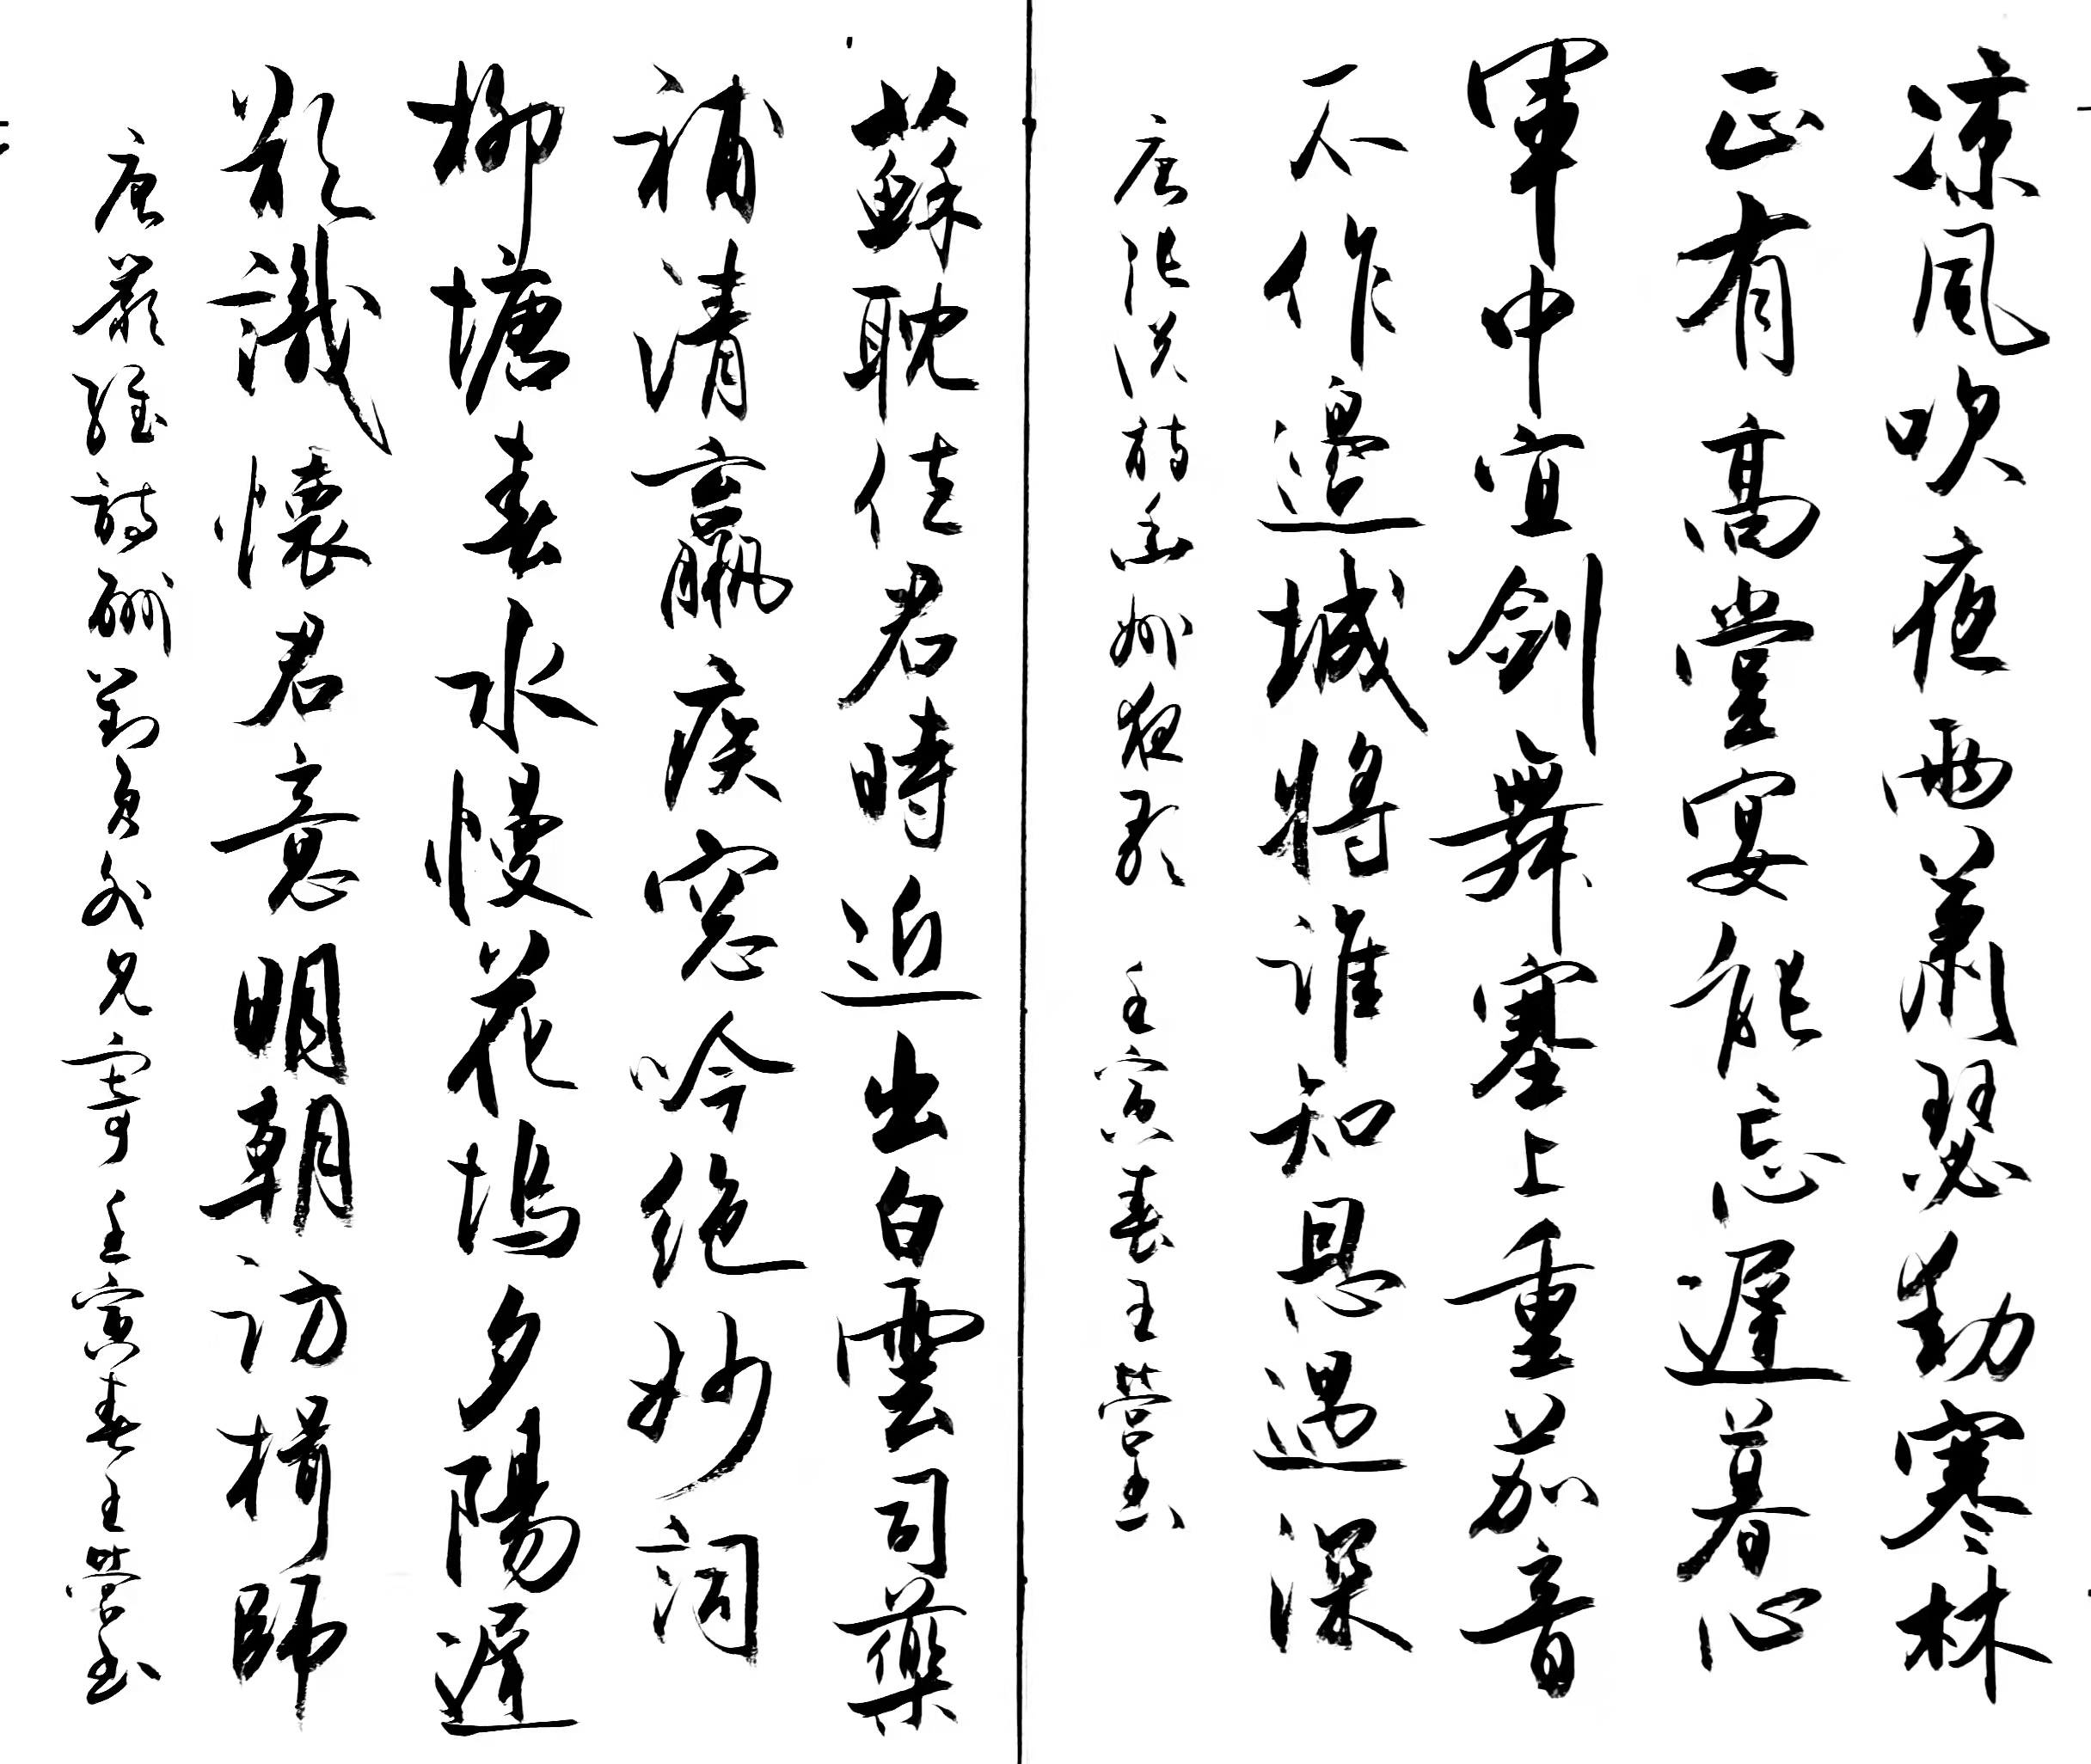 凉風吹夜雨蕭瑟動寒林
正有高堂宴能忘遲暮心
軍中宜劍舞塞上重笳音
不作邊城將誰知恩遇深
唐張說詩幽州夜飲 壬寅春王營書
蘇耽佳君時近出白雲司藥
補清羸疾窓吟絕妙詞
柳塘春水慢花塢夕陽遲
欲識懷君意明朝訪楫師
唐嚴維詩酬劉員外見寄 壬寅春王營書